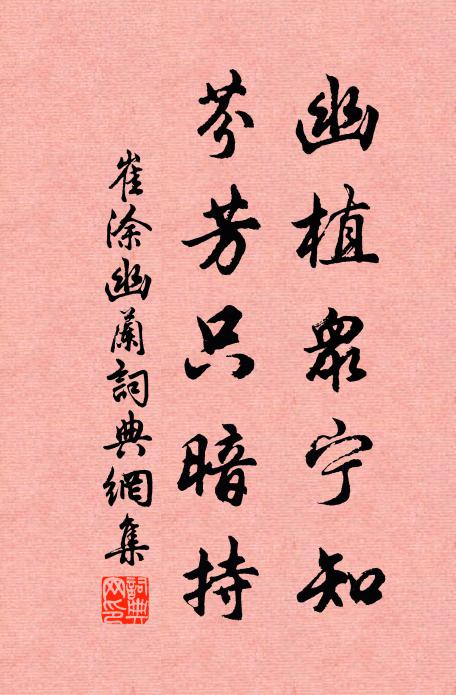 幽植眾宁知
芬芳只暗持
崔涂幽蘭詞典網集
詞典網印